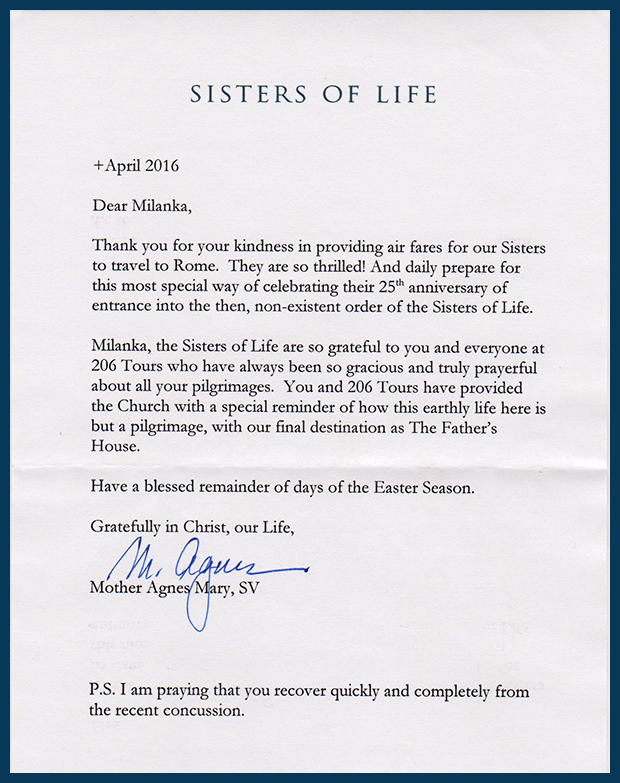 SISTERS OF LIFE
+April 2016
Dear Milanka,
Thank you for your kindness in providing air fares for our Sisters
to travel to Rome.  They are so thrilled! And daily prepare for
this most special way of celebrating their 25th anniversary of
entrance into the then, non-existent order of the Sisters of Life.
Milanka, the Sisters of Life are so grateful to you and everyone at
206 Tours who have always been so gracious and truly prayerful
about all your pilgrimages.  You and 206 Tours have provided
the Church with a special reminder of how this earthly life here is
but a pilgrimage, with our final destination as The Father's
House.
Have a blessed remainder of days of the Easter Season.
Gratefully in Christ, our Life,
M. Agnes
Mother Agnes Mary, SV
P.S. I am praying that you recover quickly and completely from
the recent concussion.